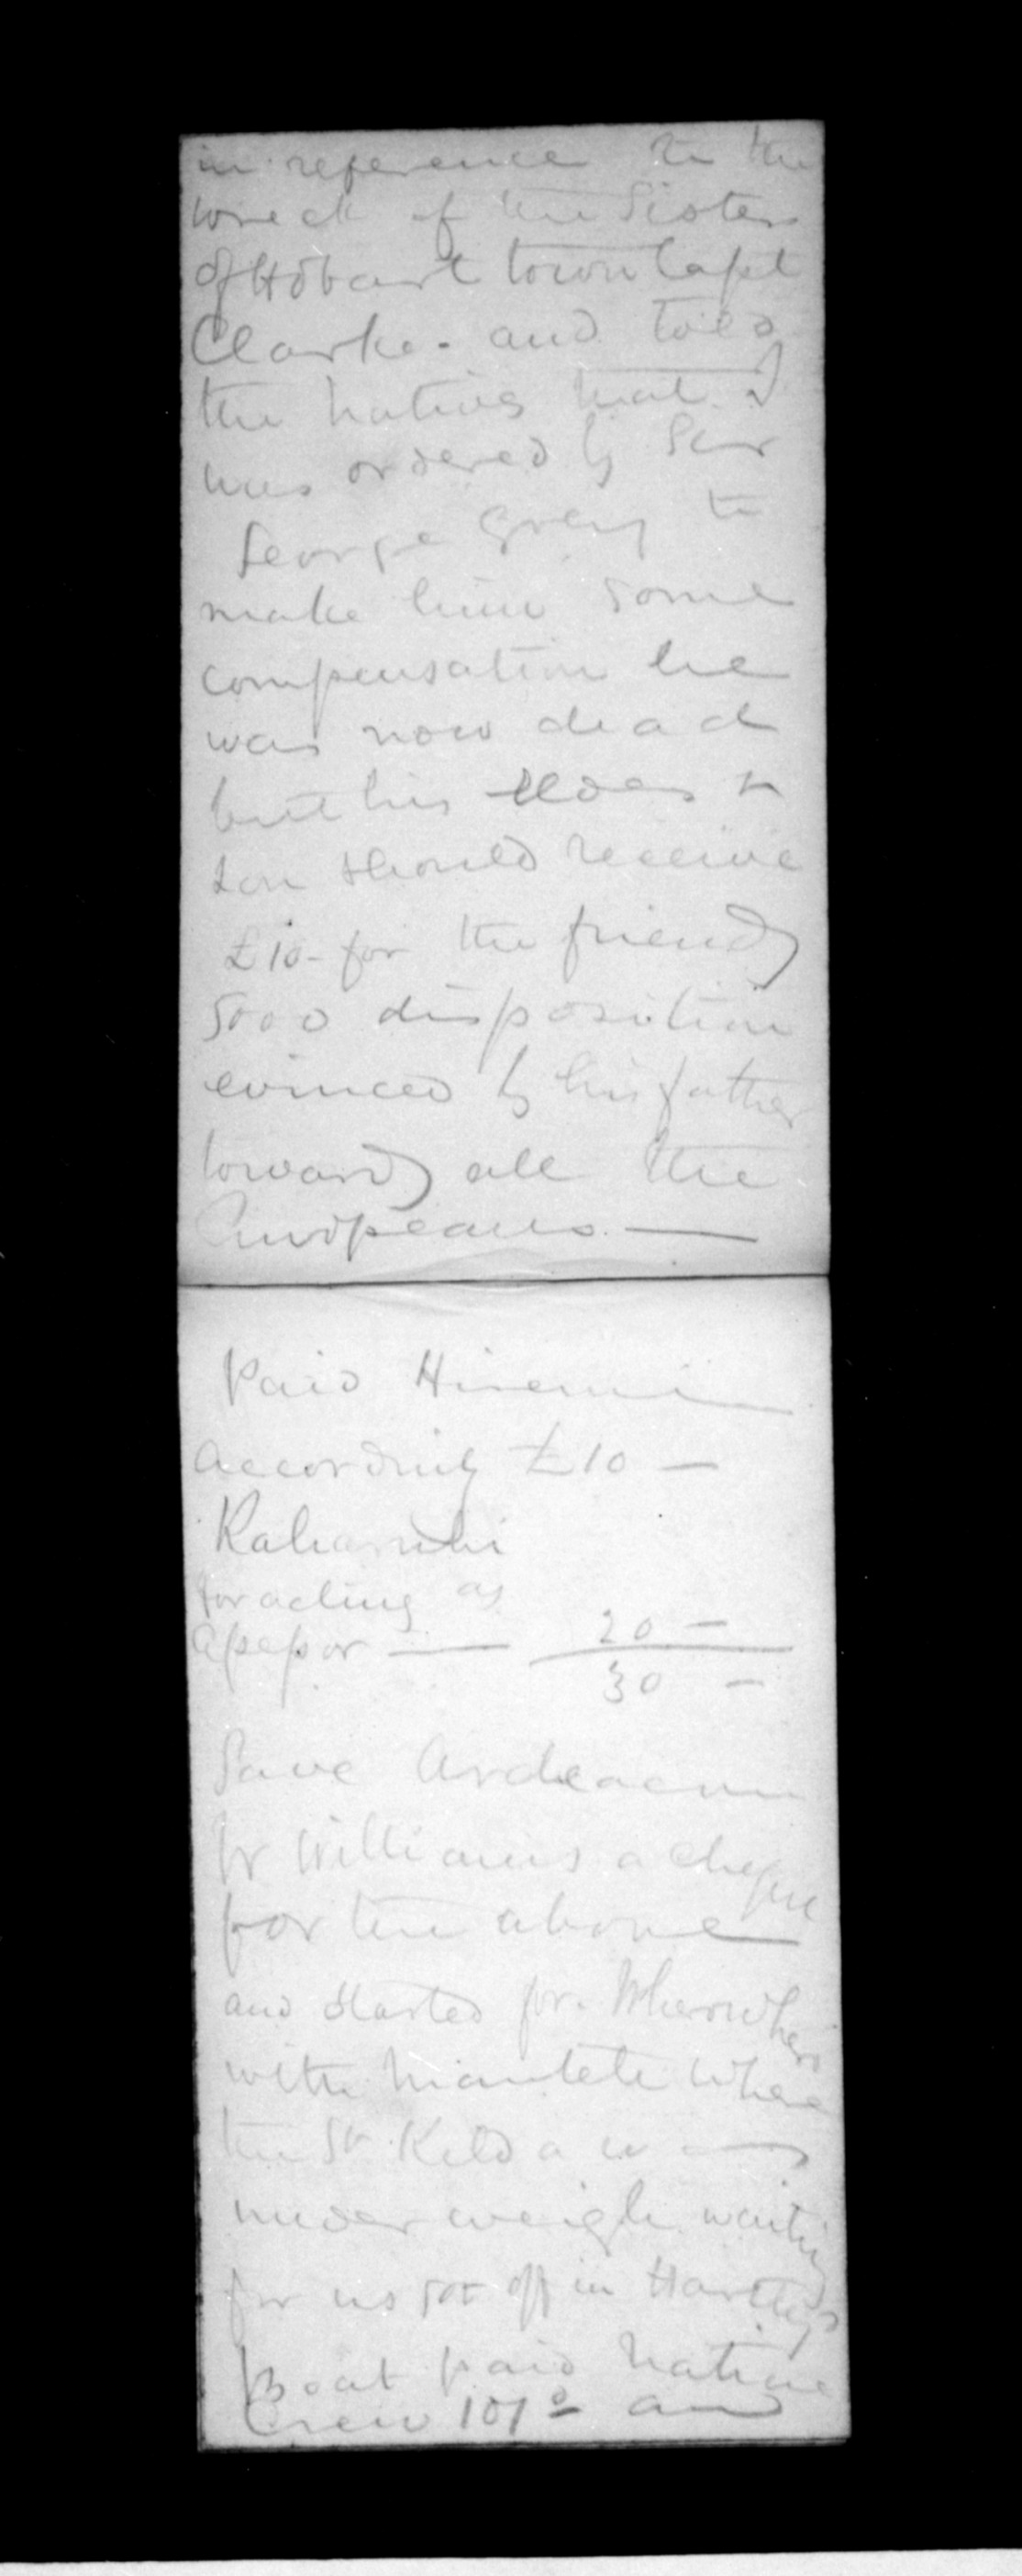 in reference to the
wreck of the Sisters
of Hobart town Capt
Clarke. and told
the natives that I
was ordered by Sir
George Grey to
make him some
compensation he
was now dead
but his Eldest
son should receive
£10 - for the friendly
good disposition
evinced by his father
towards all the
Europeans. —
Paid Hiremi
accordingly £10 —
Kahanuhi
for acling as
Assessor — 20 —
30 —
Gave Ardeacon
W Williams a cheque
for the above
and started for
with where
the St. Kilda
under weigh waiting
for us got off in Hartleys
Boat paid native
Crew 10/- and